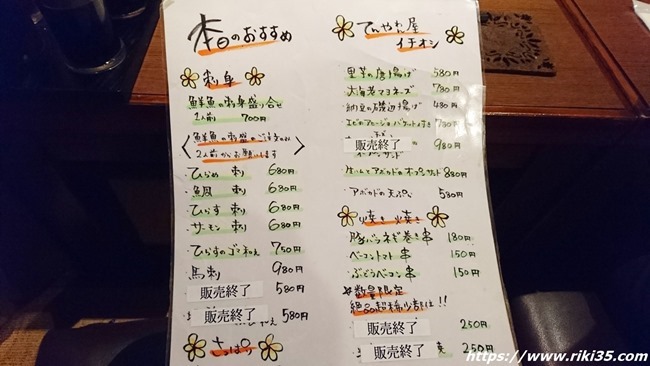 本日のおすすめ
刺身
鮮魚の刺身盛り合せ
2人前 700円
2人前からお願いします
ひらめ 刺 680円
鯛 刺 680円
ひらす 刺 680円
サーモン 刺 680円
ひらすのゴマ和え 750円
馬刺 980円
販売終了 580円
販売終了 580円
さっぱり
てんやわん屋
イチオシ
里芋の唐揚げ 580円
大海老マヨネーズ 780円
納豆の磯辺揚げ 480円
エビのアヒージョ バゲット付き 780円
販売終了 980円
生ハムとアボカドのオープンサンド 880円
アボカドの天ぷら 580円
焼き焼き
豚バラネギ巻き串 180円
ベーコントマト串 150円
ぶどうベーコン串 150円
数量限定
絶品超稀少部位!!
販売終了 250円
販売終了 250円
https://www.riki35.com